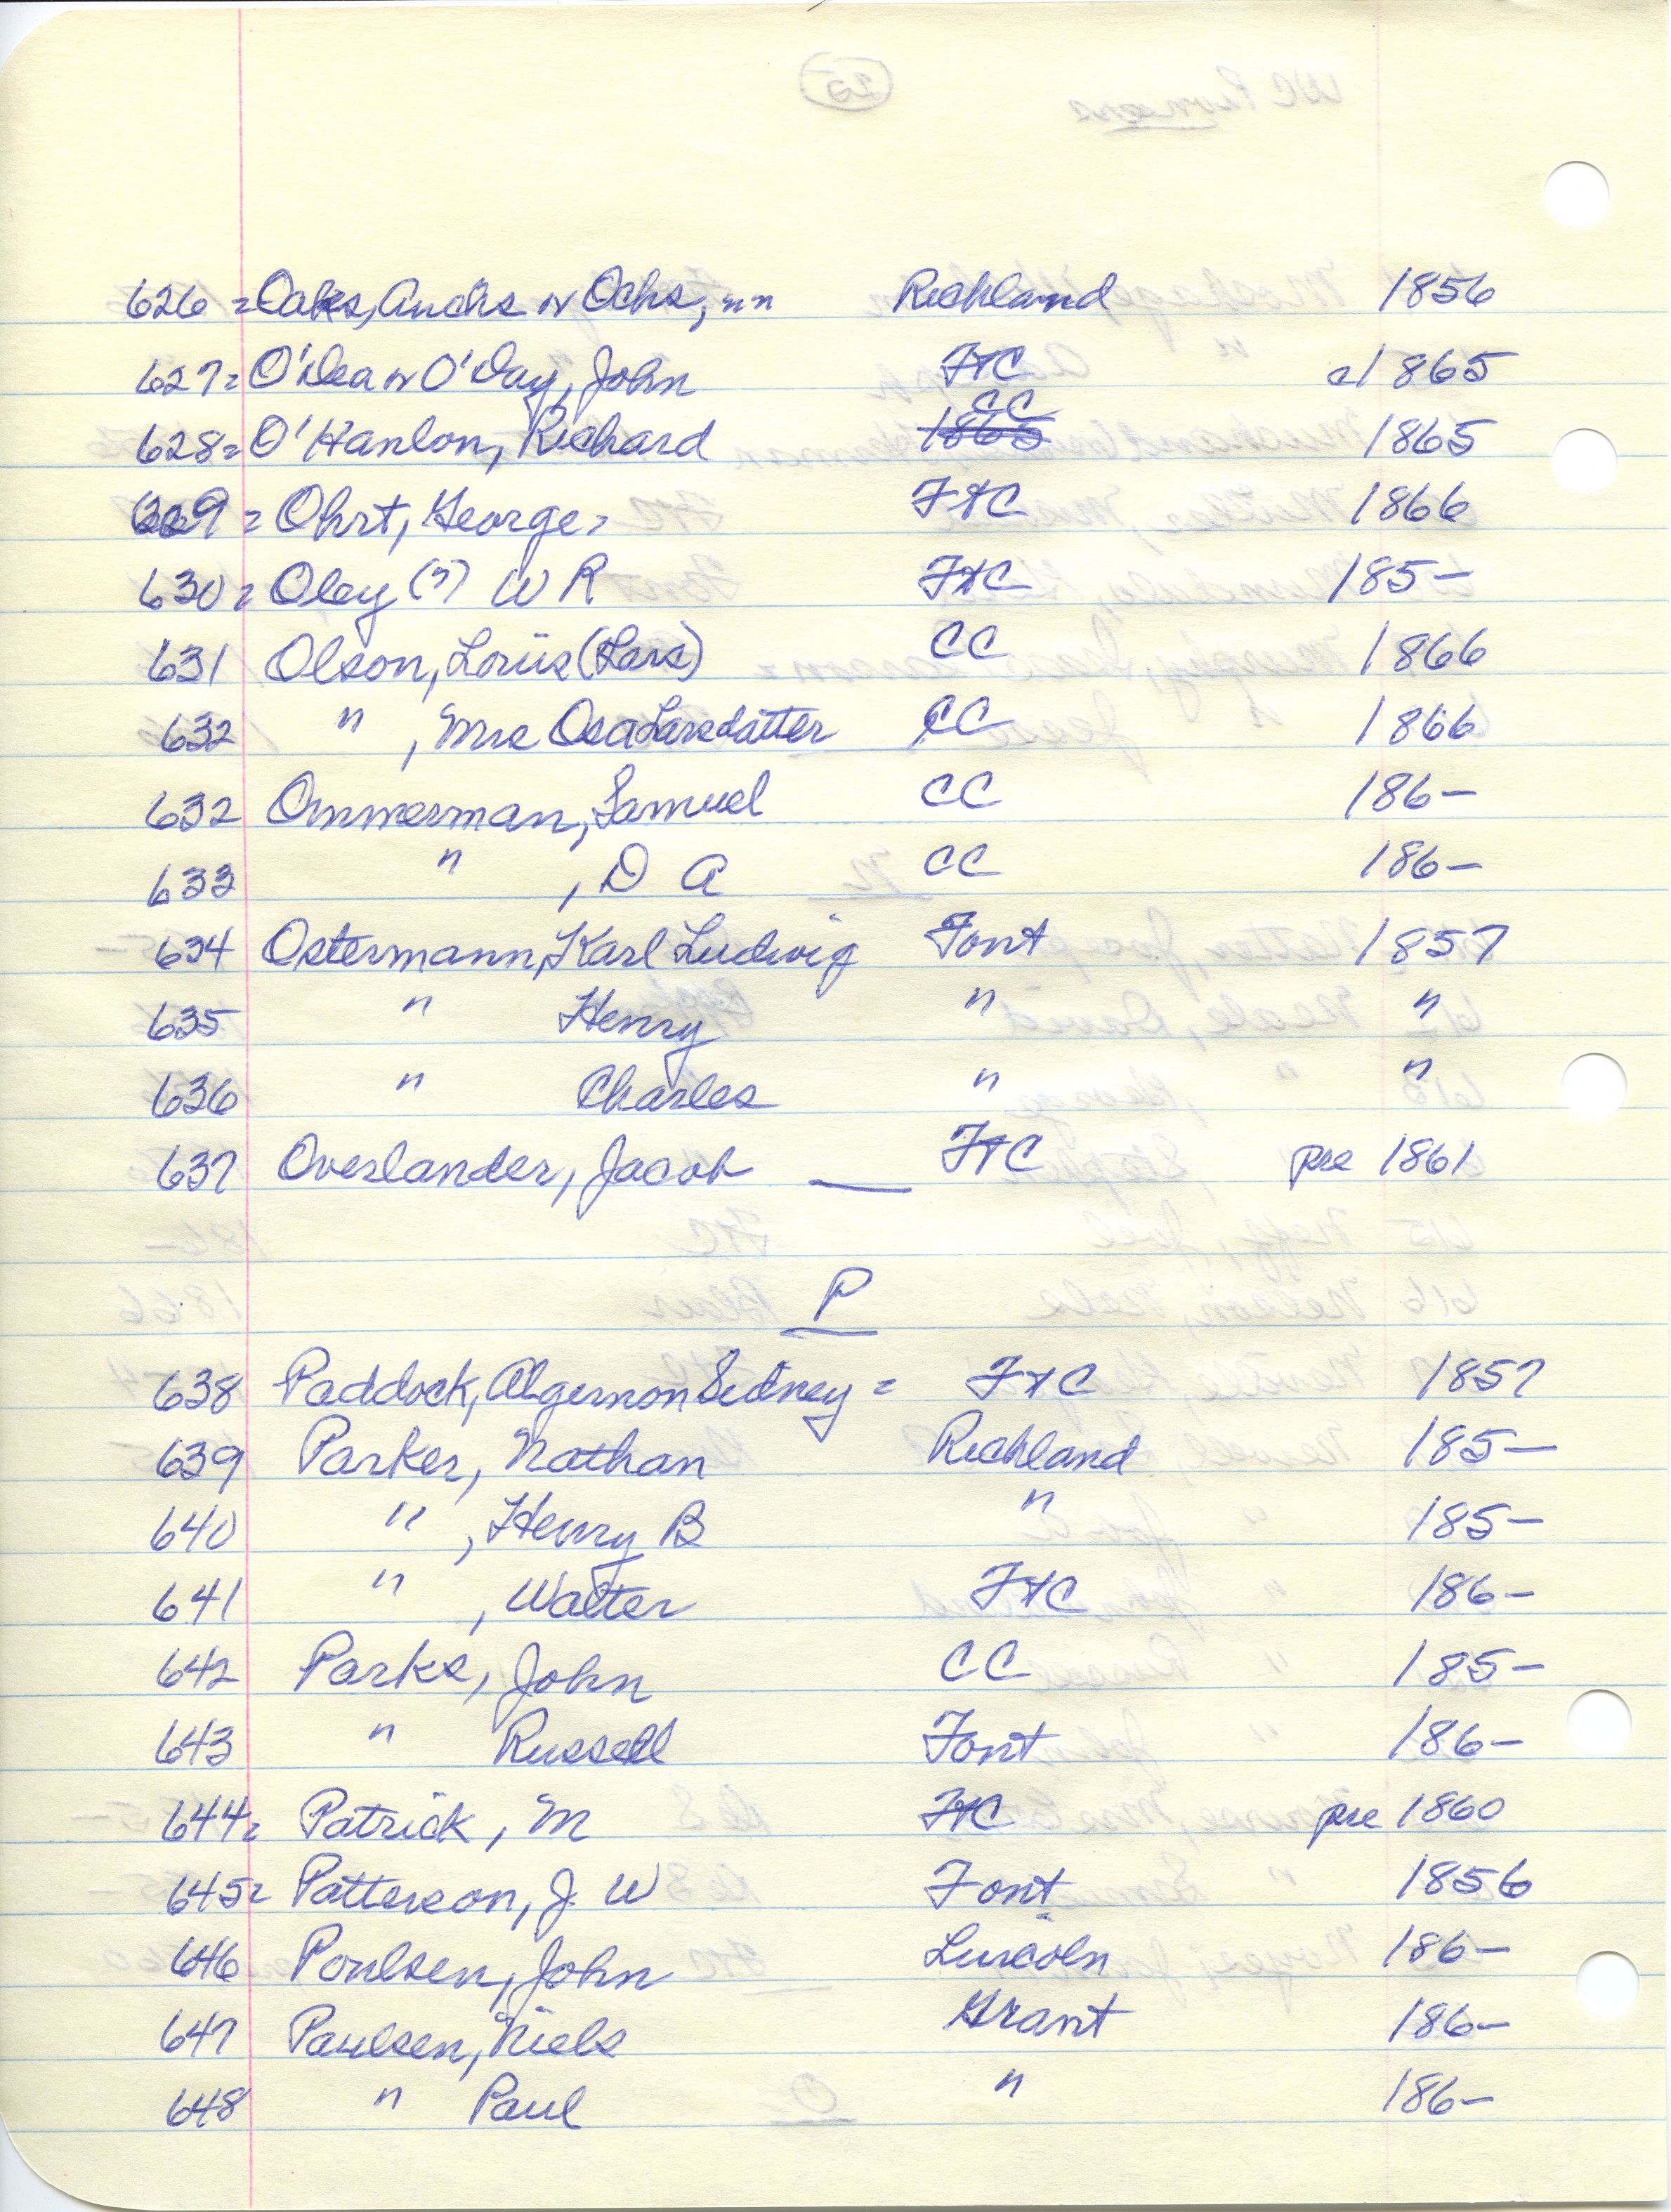 626 = Oaks, Auchs or Ochs, nn Richland 1856
627 = O'Dea or O'Day, John FtC c1865
CC
628 = O'Hanlon, Richard 1865 1865
629 = Ohrt, George = FtC 1866
630 = Oley (?) W R FtC 185-
631 Olson, Louis (Lars) CC 1866
632 " , Mrs Osa Larsdatter CC 1866
632 Ommerman, Samuel CC 186-
633 " , D A CC 186-
634 Ostermann, Karl Ludwig Font 1857
635 " Henry " "
636 " Charles " "
637 Overlander, Jacob — FtC pre 1861
P
638 Paddock, Algernon Sidney = FtC 1857
639 Parker, Nathan Richland 185-
640 " , Henry B " 185-
641 " , Walter FtC 186-
642 Parks, John CC 185-
643 " Russell Font 186-
644 = Patrick, M FtC pre 1860
645 = Patterson, J. W Font 1856
646 Poulsen, John Lincoln 186-
647 Paulsen, Niels Grant 186-
648 " Paul " 186-